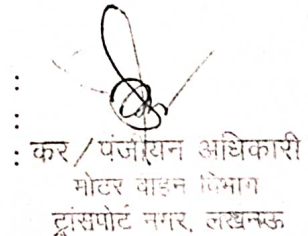 :
:
: कर / पंजीयन अधिकारी
मोटर वाहन विभाग
ट्रांसपोर्ट नगर, लखनऊ